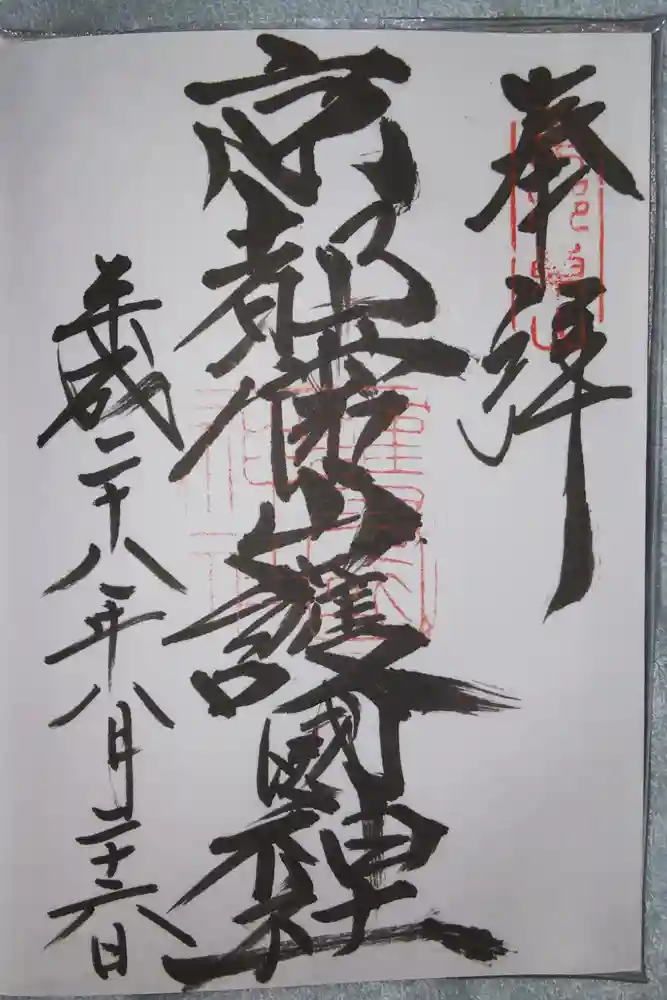 奉拝
京都霊山護國神社
平成二十八年八月二十六日